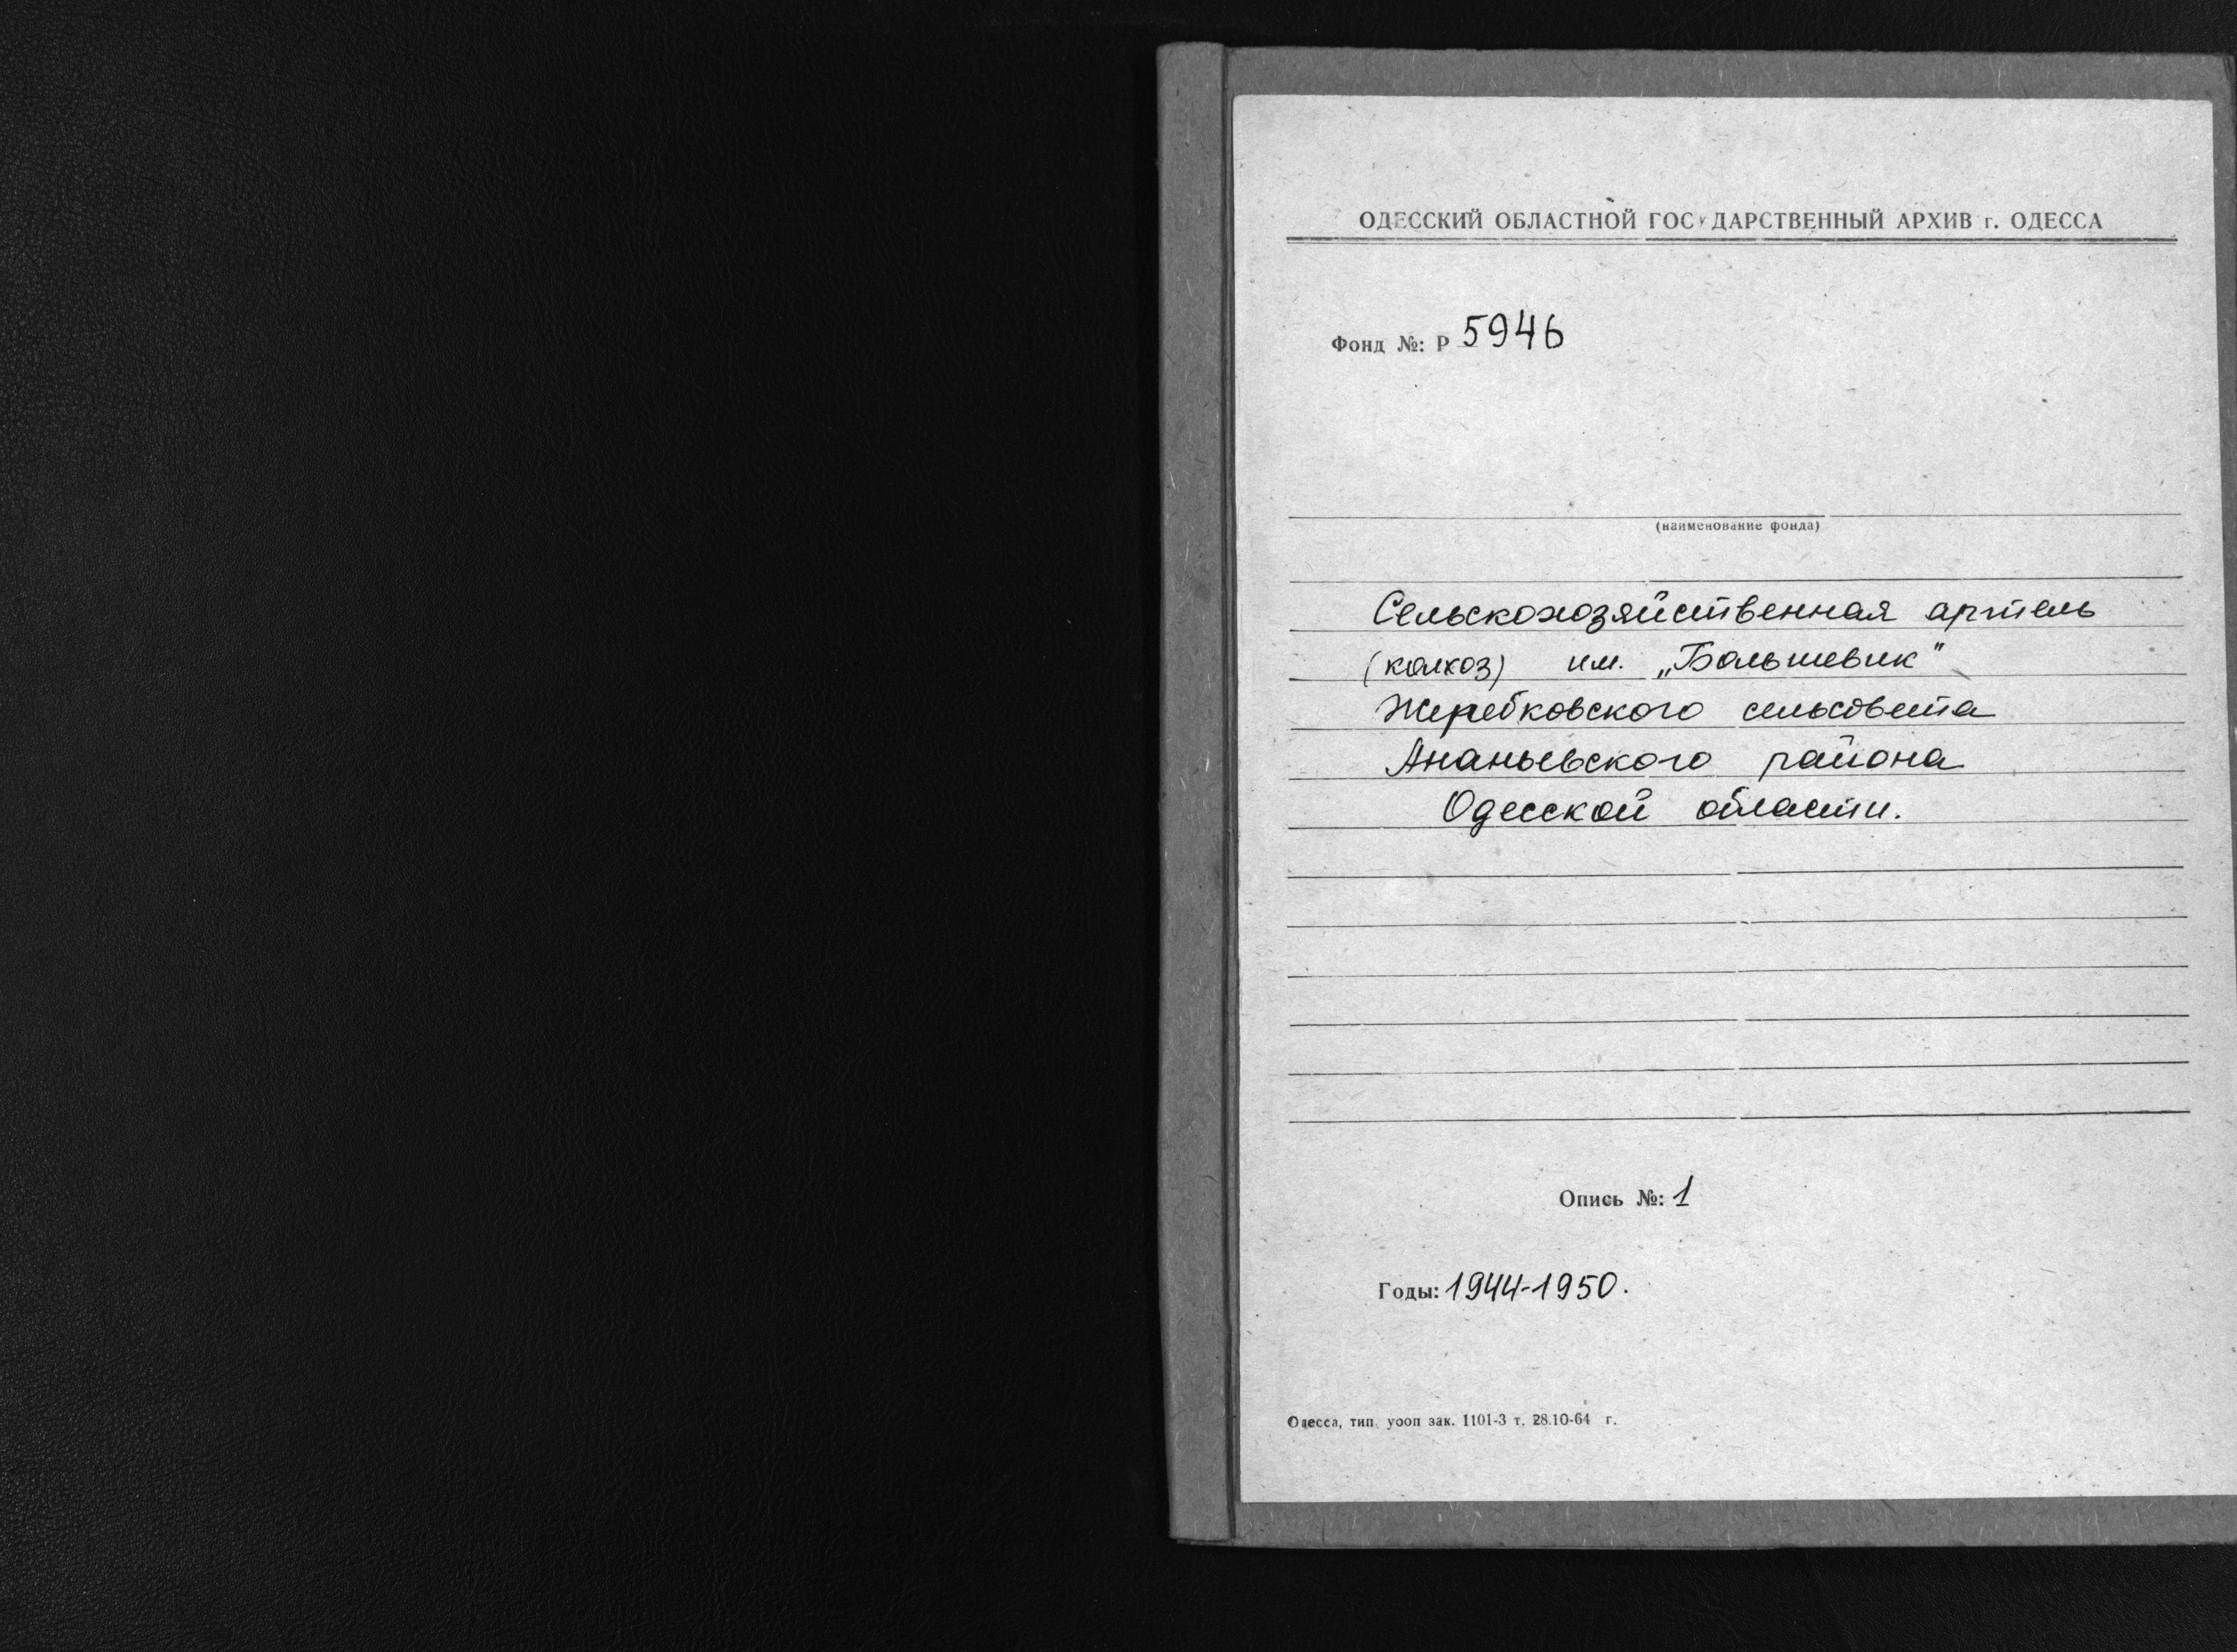 ОДЕССКИЙ ОБЛАСТНОЙ ГОСУДАРСТВЕННЫЙ АРХИВ г. ОДЕССА
Фонд №: Р 5946
(наименование фонда)
Сельскохозяйственная артель
(колхоз) им. „Большевик"
Жеребковского сельсовета
Ананьевского района
Одесской области.
Опись №: 1
Годы: 1944-1950.
Одесса, тип. уооп зак. 1101-3 т. 28.10-64 г.